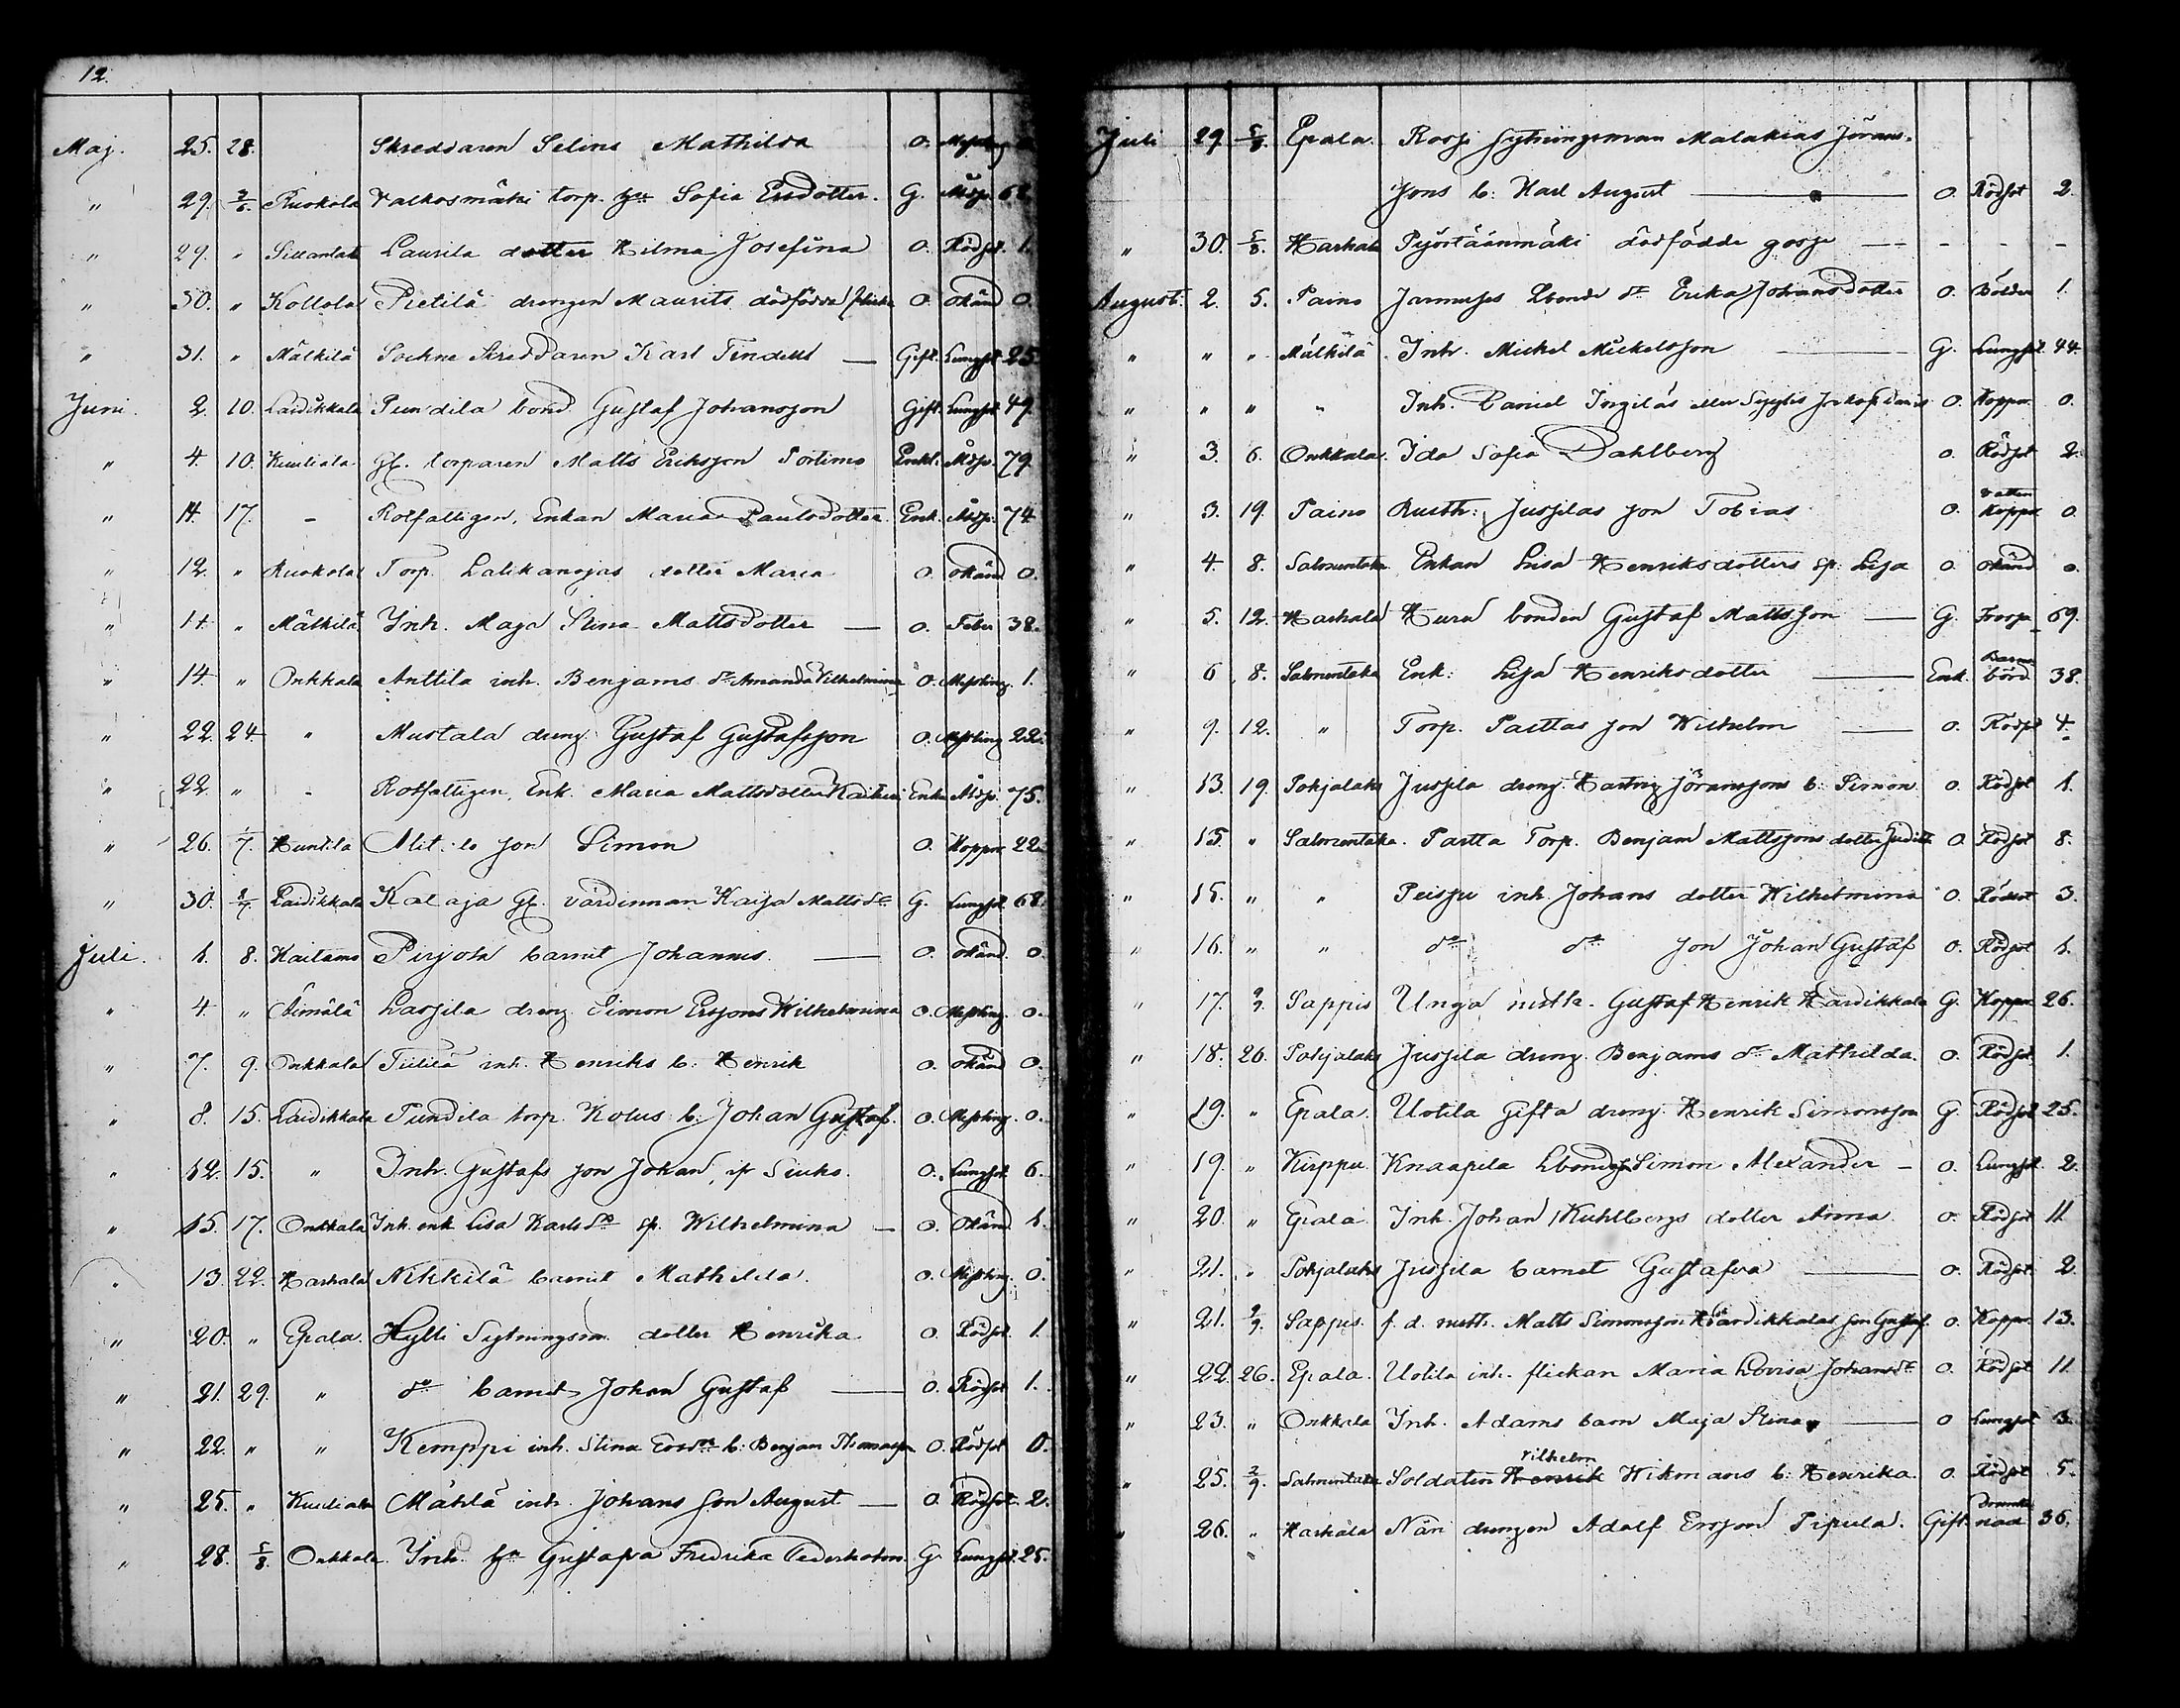 12.
Maj. 25. 28. Skreddaren Selins Mathilda O. Messling
" 29. 2/6. Ruokola Valkosmäki torp. hu Sofia Ersdotter. G. Ålder. 62
" 29. " Laurila dotter Hilma Josefina O. Rödsot. 1.
" 30. " Kollola Pietilä drengen Maurits dödfödda flicka O. okänd 0.
" 31. " Mälkilä Sockne Skreddaren Karl Tindell — Gift. Lungsot 25
Juni. 2. 10. Laidikkala Pundila bond. Gustaf Johansson Gift. Lungsot 49.
" 4. 10. Kuuliala Gl. torparen Matts Eriksson Portimo Enkl. Åldr. 79.
" 14. 17. - Rotfattigen, Enkan Maria Paulsdotter. Enk. Åldr. 74.
" 12. " Ruokola Torp. Lalikanojas dotter Maria O. okänd 0.
" 14. " Mälkilä Inh. Maja Stina Mattsdotter — O. Feber 38.
" 14. " Onkkala Anttila inh. Benjams dr. Amanda Vilhelmina O. Messling. 1.
" 22. 24. " Mustala dreng. Gustaf Gustafsson O. Messling 22.
" 22. " - Rotfattigen, Enk. Maria Mattsdotter Enka Åldr. 75.
" 26. 1/7. Huntila son Simon O. Koppor 22.
" 30. 8/7. Laidikkala Kataja Gl. värdinnan Kaisa Mattsdr. G. Lungsot. 68.
Juli. 1. 8. Kaitamo Pirjola barnet Johannes. — O. okänd. 0.
" 4. " Äimälä Lassila dreng Simon Erssons Wilhelmina O. Messling. 0.
" 7. 9. Onkkala Tiililä inh. Henriks b: Henrik O. okänd 0.
" 8. 15. Laidikkala Pundila torp. Kolus b: Johan Gustaf. O. Messling. 0.
" 12. 15. " Inh. Gustafs son Johan, O. Lungsot. 6.
" 15. 17. Onkkala Inh. enk. Lisa Karlsdr sp. Wilhelmina — O. Okänd 1.
" 13. 22. Harhala Nikkilä barnet Mathilda. O. Messling. 0.
" 20. " Epala. Hylli Sytningsm. dotter Henrika O. Rödsot. 1.
" 21. 29. " do barnet Johan Gustaf — O. Rödsot 1.
" 22. " " Kemppi inh. Stina Ersdr b: Benjam Thomasson O. Rödsot 0.
" 25. " Kuuliala Mählä inh. Johans son August — O. Rödsot. 2.
" 28. 5/8. Onkkala. Inh. hu Gustafva Fredrika Cederholm. G. Lungsot. 25.
Juli 29 5/8. Epala. Rossi Sytningsman Malakias Jörans-
sons b: Karl August — O. Rödsot 2.
" 30. 5/8. Harhala dödfödde gosse — - - -
August. 2. 5. Paino Lbonde dr. Erika Johansdotter O. Bölder 1.
" " " Mälkilä Inh. Mickel Mickelsson — G. Lungsot. 44.
" " " " Inh. Daniel eller O. Koppor. 0.
" 3. 6. Onkkala. Ida Sofia Dahlberg O. Rödsot 2.
" 3. 19. Paino Rusth: Jussilas son Tobias O. Vatten Koppor 0.
" 4. 8. Salmentaka Enkan Lisa Henriksdotters sp. Lisa O. okänd 0.
" 5. 12. Harhala Huru bonden Gustaf Mattsson — G. Frossa 69.
" 6 8. Salmentaka Enk: Lisa Henriksdotter — Enk. Barnsbörd 38.
" 9. 12. " Torp. Parttas son Wilhelm — O. Rödsot 4.
" 13. 19. Pohjalaks Jussila dreng. Hartvig Jöranssons b: Simon O. Rödsot 1.
" 15. " Salmentaka. Partta Torp. Benjam Mattssons dotter Judith O. Rödsot 8.
" 15. " " Peisju inh. Johans dotter Wilhelmina O. Rödsot 3.
" 16. " " do do son Johan Gustaf O. Rödsot 1.
" 17. 2/9. Sappis Unga rusth. Gustaf Henrik Hardikkala G. Koppor. 26.
" 18. 26. Pohjalaks Jussila dreng. Benjams dr. Mathilda. O. Rödsot. 1.
" 19. " Epala. Uotila Gifta dreng Henrik Simonsson G. Rödsot 25.
" 19. " Kirppu. Knaapila Lbonde Simon Alexander - O. Lungsot. 2.
" 20. " Epala Inh. Johan Kuhlbergs dotter Anna O. Rödsot 11.
" 21. " Pohjalaks Jussila barnet Gustafva — O. Rödsot. 2.
" 21. 2/9. Sappis. f. d. rusth. Matts Simonsson Hardikkalas son Gustaf. O. Koppor. 13.
" 22. 26. Epala. Uotila inh. flickan Maria Lovisa Johansdr. O. Rödsot 11.
" 23. " Onkkala Inh. Adams barn Maja Stina — O Lungsot 3.
" 25. 2/9. Salmentaka Soldaten Henrik Vilhelm Wikmans b: Henrika. O. Rödsot 5.
" 26. " Harhala Näri drengen Adolf Ersson Pipula. Gift. Drunknad 36.